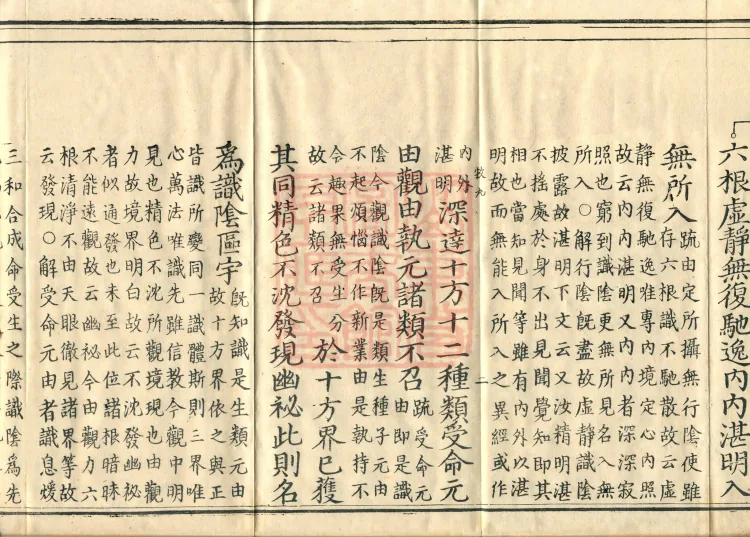 六根虛靜無復馳逸內內湛明入
無所入
疏由定所攝無行陰使雖
存六根識不馳散故云虛
靜無復馳逸雖專內境定心內照
故云內內湛明又內內者深深寂
照也窮到識陰更無所見名入無
所入○解行陰既盡故虛靜識陰
披露故湛明下文云又汝精明湛
不搖處於身不出見聞覺知即其
相也當知見聞等雖有內外以湛
明故而無能入所入之異經或作
二
內外
湛明
深達十方十二種類受命元
由觀由執元諸類不召
疏受命元
由即是識
陰今觀識陰既是類生種子元由
不起煩惱不作新業由是執持不
令趣果無受生分
故云諸類不召
於十方界已獲
其同精色不沈發現幽祕此則名
為識陰區宇
既知識是生類元由
故十方界依之與正
皆識所變同一識體斯則三界唯
心萬法唯識先雖信教今觀中明
見也精色不沈所觀境現也由觀
力故境界明白故云不沈發幽祕
者似通發也未至此位諸根暗昧
不能遠觀故云幽祕今由觀力六
根清淨不由天眼徹見諸界等故
云發現○解受命元由者識息煖
三和合成命受生之際識陰為先